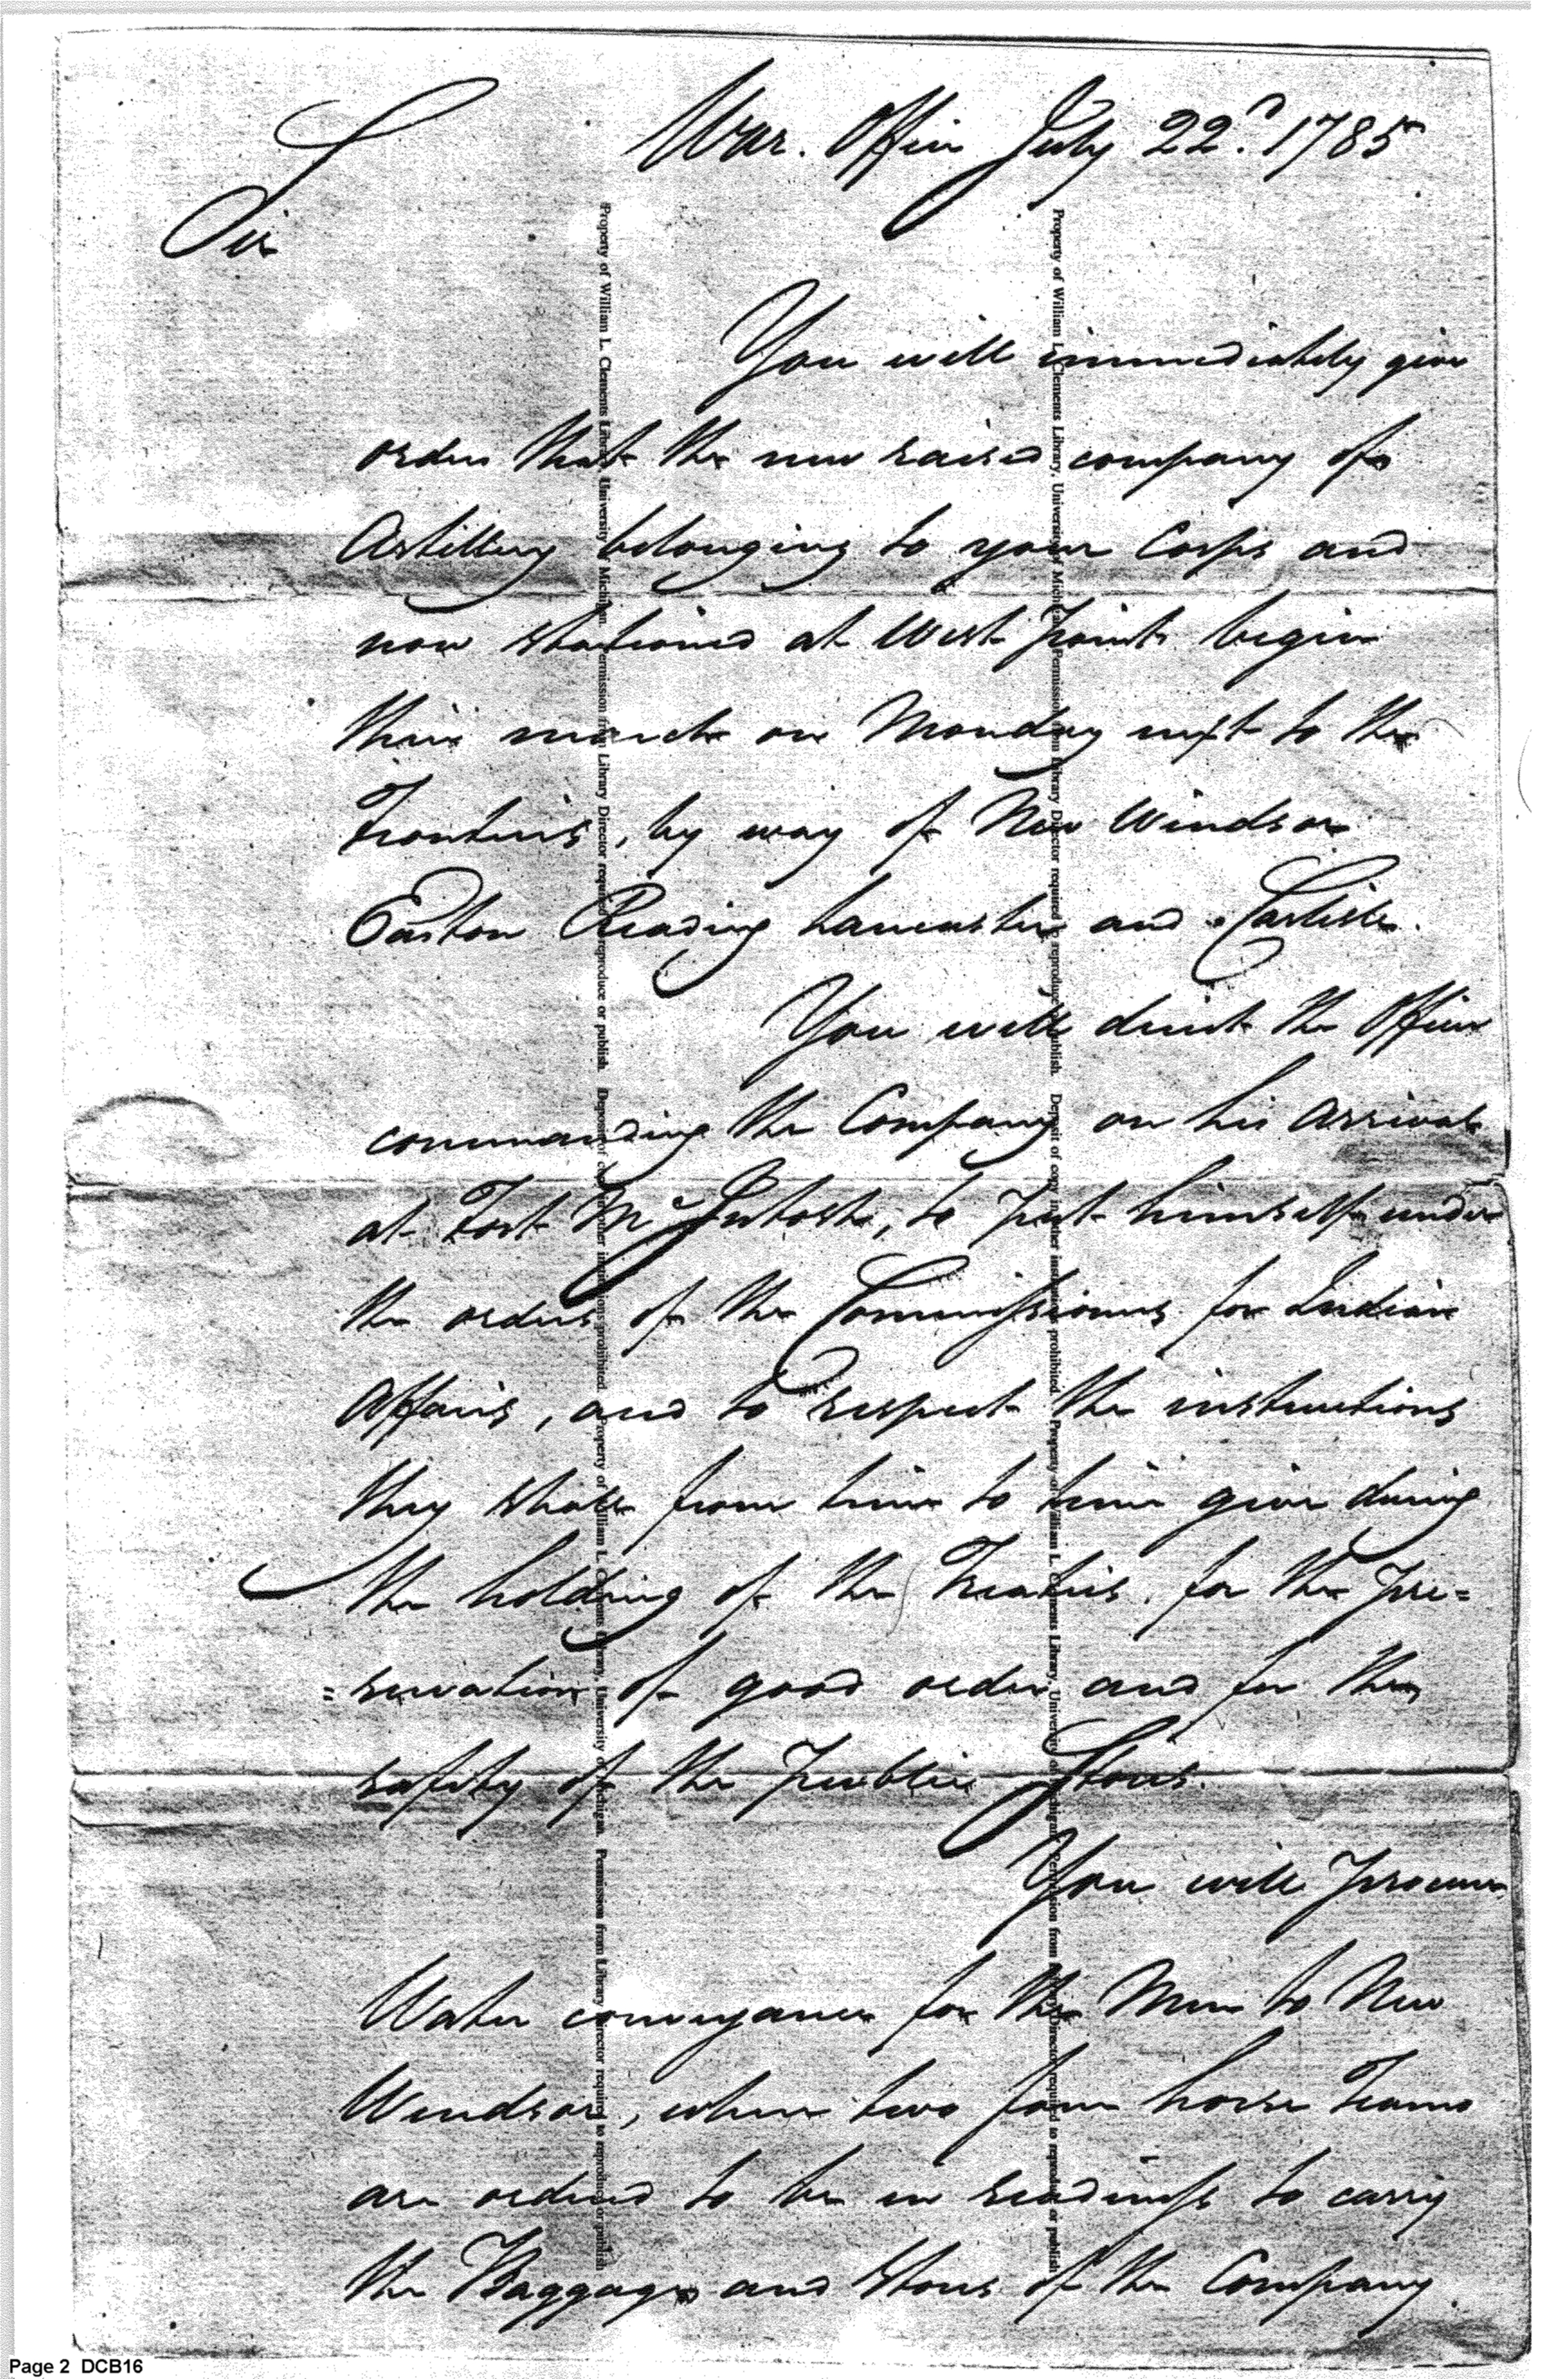 War. Office July 22d. 1785
Sir
You will immediately give
orders that the new raised company of
Artillery belonging to your Corps and
now stationed at West-point begin
their march on Monday next to the
Frontiers, by way of New Windsor
Easton Reading Lancaster and Carlisle.
You will direct the Officer
commanding the Company on his arrival
at Fort McIntosh, to put himself under
the orders of the Commissioners for Indian
Affairs, and to respect the instructions
they shall from time to time give during
the holding of the Treaties, for the pre=
=servation of good order and for the
safety of the public Stores.
You will procure
Water conveyance for the Men to New
Windsor, where two four horse Teams
are ordered to be in readiness to carry
the Baggage and stores of the Company
Property of William L. Clements Library, University of Michigan. Permission from Library Director required to reproduce or publish. Deposit of copy in other institutions prohibited. Property of William L. Clements Library, University of Michigan. Permission from Library Director required to reproduce or publish
Property of William L. Clements Library, University of Michigan. Permission from Library Director required to reproduce or publish. Deposit of copy in other institutions prohibited. Property of William L. Clements Library, University of Michigan. Permission from Library Director required to reproduce or publish
Page 2 DCB16